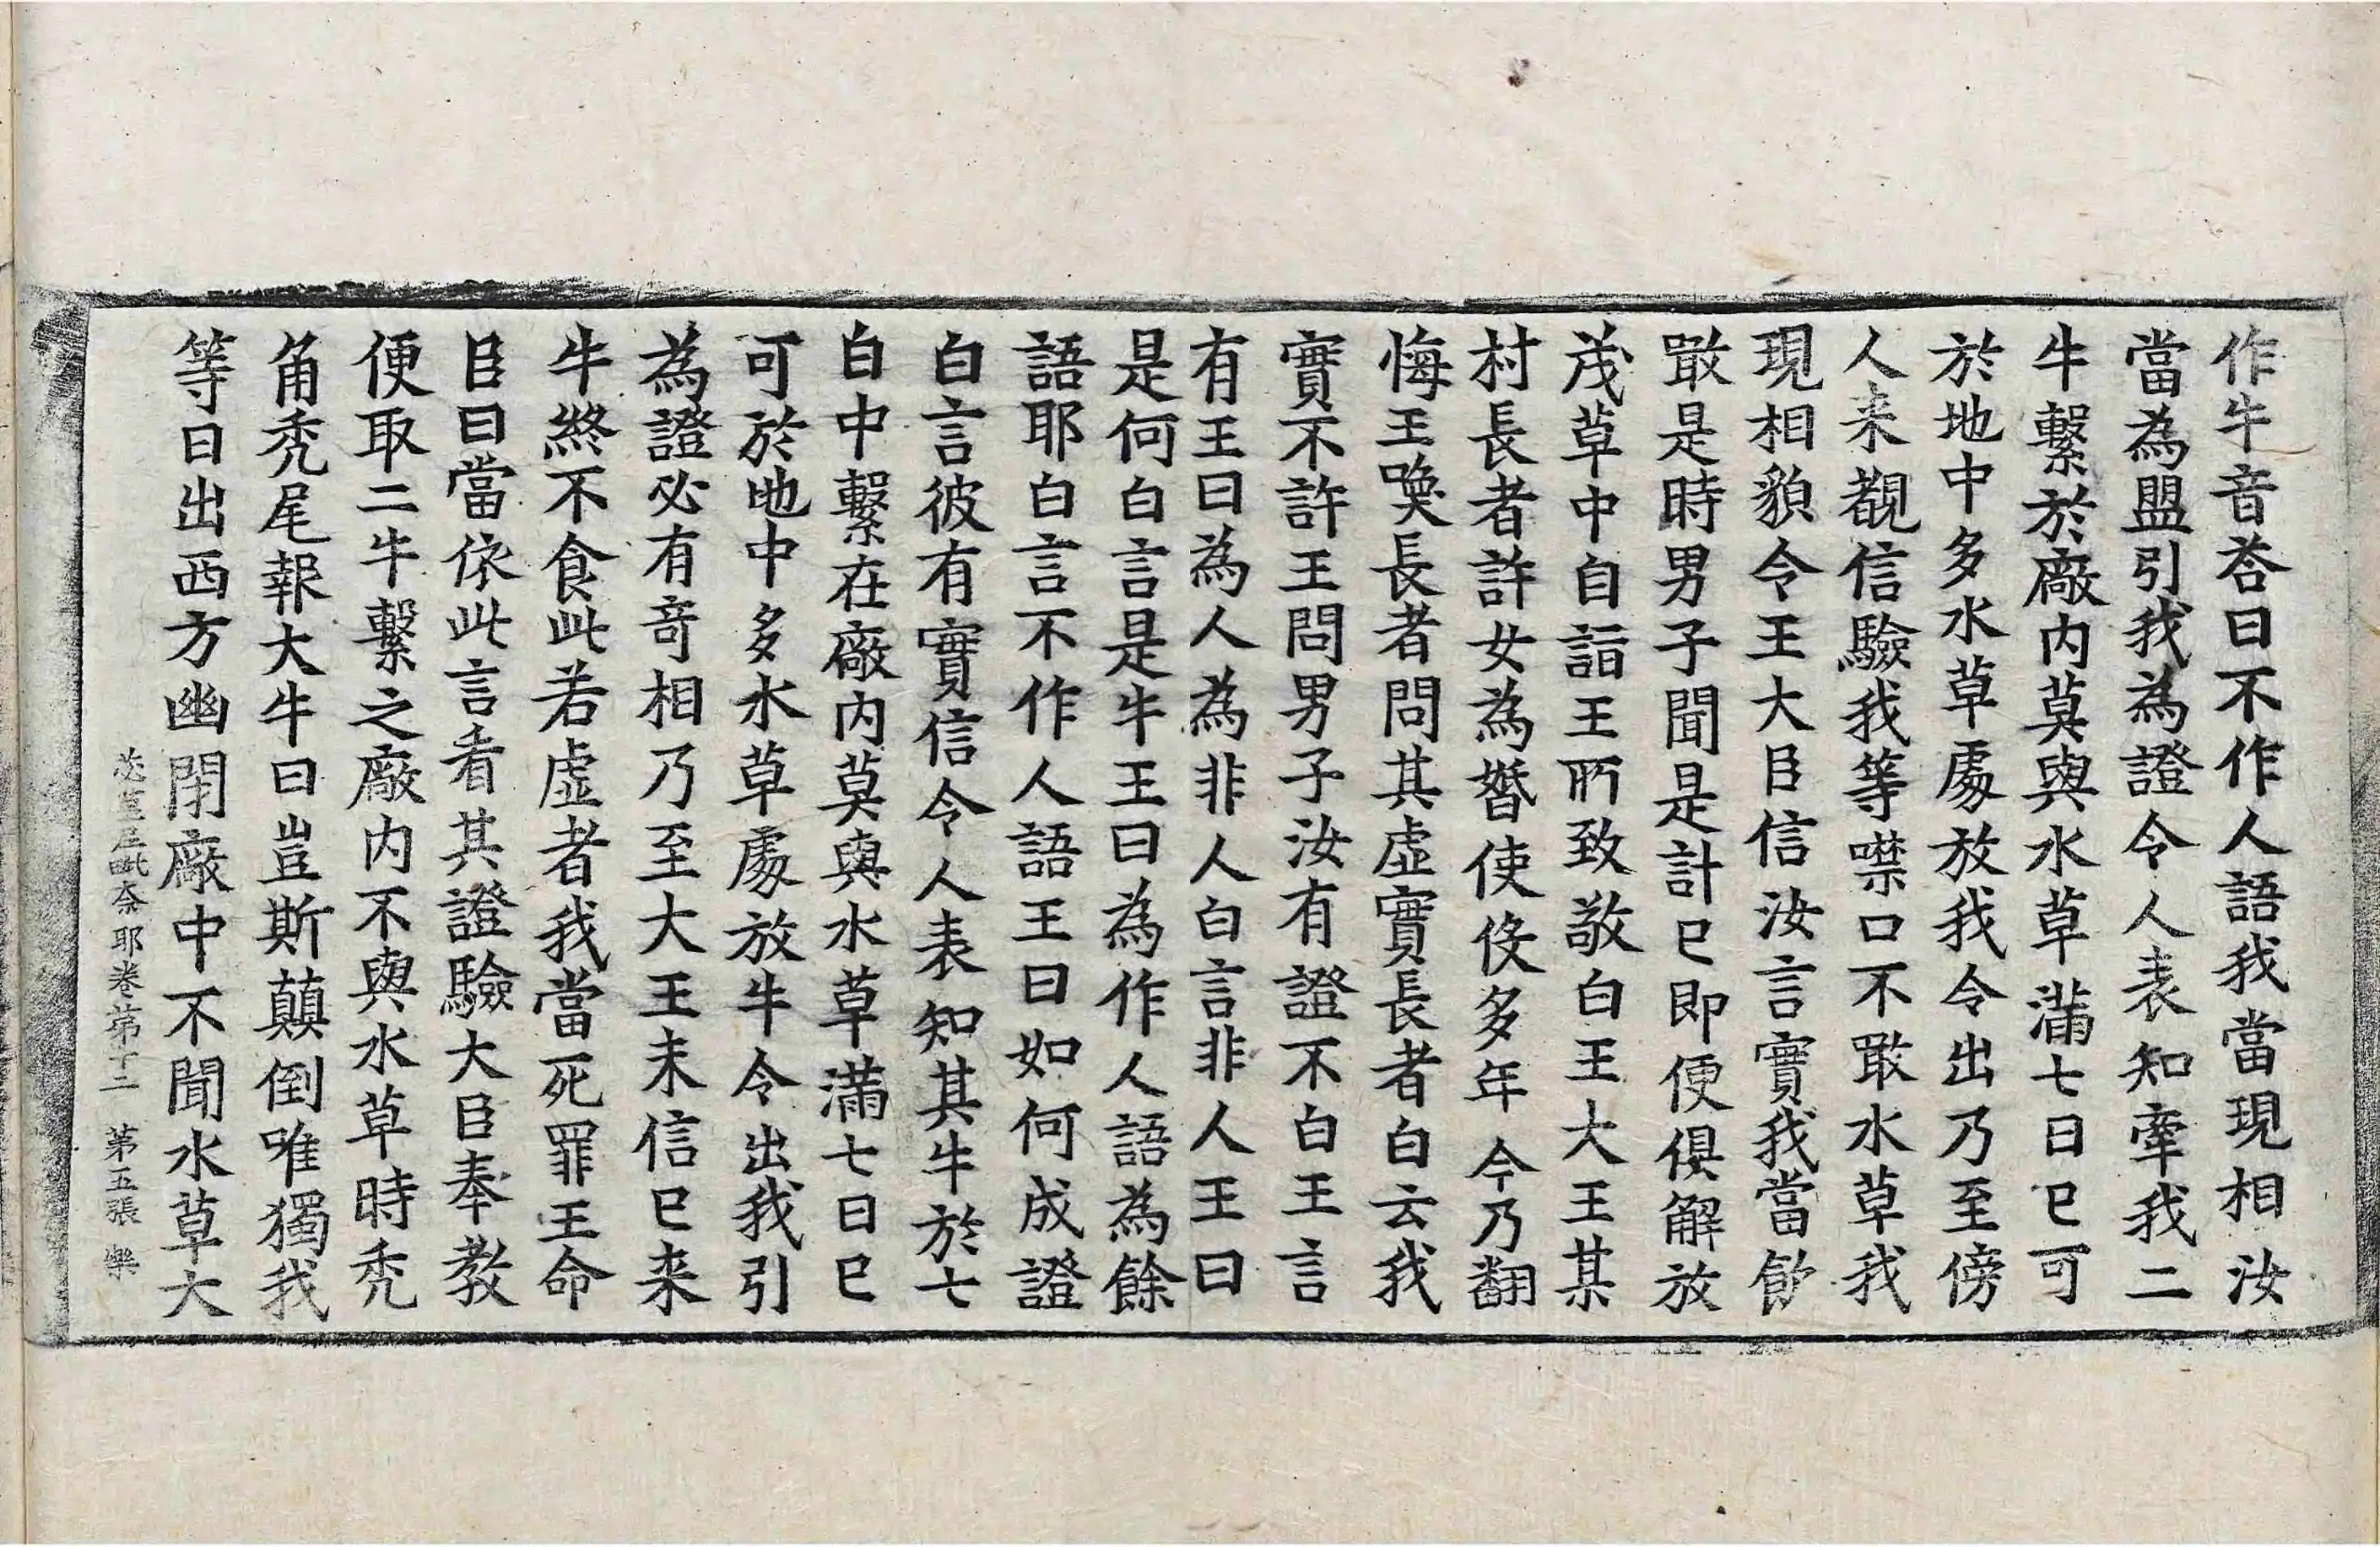 作牛音荅曰不作人語我當現相汝
當為盟引我為證令人表知牽我二
牛繫於廠内莫與水草滿七日已可
於地中多水草處放我令出乃至傍
人来覩信驗我等噤口不敢水草我
現相貌令王大臣信汝言實我當飲
敢是時男子聞是計已即便俱解放
茂草中自詣王所致敬白王大王某
村長者許女為婚使伇多年今乃翻
悔王喚長者問其虛實長者白云我
實不許王問男子汝有證不白王言
有王曰為人為非人白言非人王曰
是何白言是牛王曰為作人語為餘
語耶白言不作人語王曰如何成證
白言彼有實信令人表知其牛於七
日中繫在廠内莫與水草滿七日已
可於地中多水草處放牛令出我引
為證必有竒相乃至大王未信已来
牛終不食此若虛者我當死罪王命
臣曰當依此言看其證驗大臣奉教
便取二牛繫之廠内不與水草時禿
角禿尾報大牛曰豈斯顛倒唯獨我
等日出西方幽閉廠中不聞水草大
苾蒭尼毗奈耶卷第十二　第五張　樂